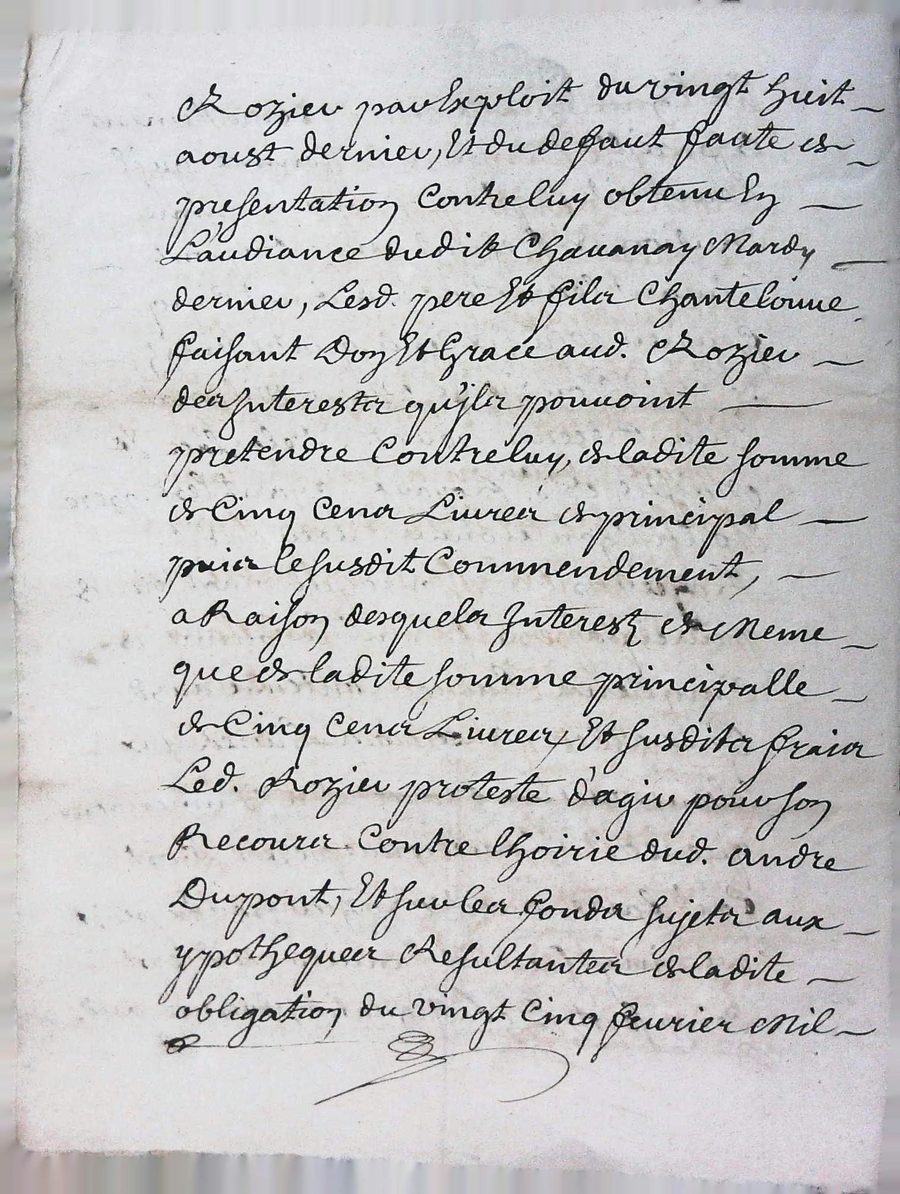 Rozier par Exploit du vingt huit
aoust dernier, Et du defaut faute de
presentation Contre luy obtenu En
L'audiance dudit Chavanay Mardy
dernier, Lesd. pere Et fils Chantelouve
faisant Don Et Grace aud. Rozier
des Interests qu'ils pouvoint
pretendre Contre luy, de ladite somme
de Cinq Cens Livres de principal
puis le susdit Commendement,
a Raison desquels Interest de Meme
que de ladite somme principalle
de Cinq Cens Livres, Et susdits frais
Led. Rozier proteste d'agir pour son
Recours Contre lhoirie dud. andre
Dupont, Et sur les fonds sujets aux
ypotheques Resultantes de ladite
obligation du vingt Cinq fevrier Mil